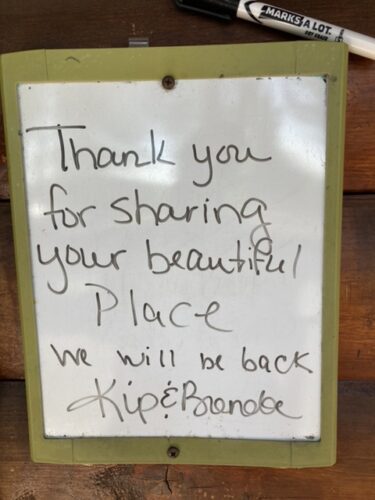 MARKS A LOT.
DRY ERASE
Thank you
for sharing
your beautiful
Place
we will be back
Kip & Brenda